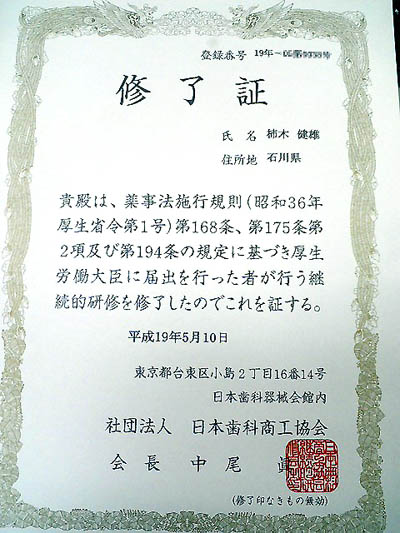 登録番号 19年-
修了証
氏名 柿木 健雄
住所地 石川県
貴殿は、薬事法施行規則(昭和36年
厚生省令第1号)第168条、第175条第
2項及び第194条の規定に基づき厚生
労働大臣に届出を行った者が行う継
続的研修を修了したのでこれを証する。
平成19年5月10日
東京都台東区小島2丁目16番14号
日本歯科器械会館内
社団法人 日本歯科商工協会
会長 中尾 眞
(修了印なきもの無効)